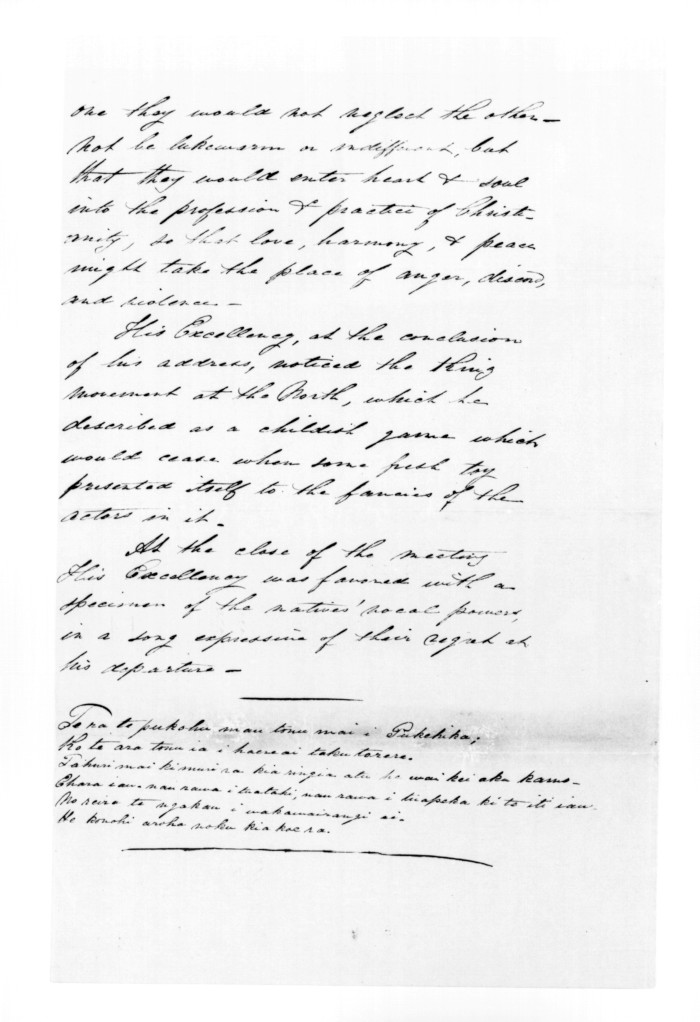 one they would not neglect the other—
not be lukewarm or indifferent, but
that they would enter heart & soul
into the profession & practice of Christi-
anity, so that love, harmony, & peace
might take the place of anger, discord,
and violence—
His Excellency, at the conclusion
of his address, noticed the King
movement at the North, which he
described as a childish game which
would cease when some fresh toy
presented itself to the fancies of the
actors in it—
At the close of the meeting
His Excellency was favored with a
specimen of the natives' vocal powers,
in a song expressive of their regret at
his departure—
Tera te pukohu mau tonu mai i Pukehika,
Ko te ara tonu ia i haereai taku torere.
Tahuri mai ki muri ra kia ringia atu he wai kei aku kamo—
Ehara i au. nau rawa i wataki, nau rawa i wiapeka ki te iti i au.
No reira te ngakau i wakawairangi ai.
He konohi aroha noku kia koe ra.